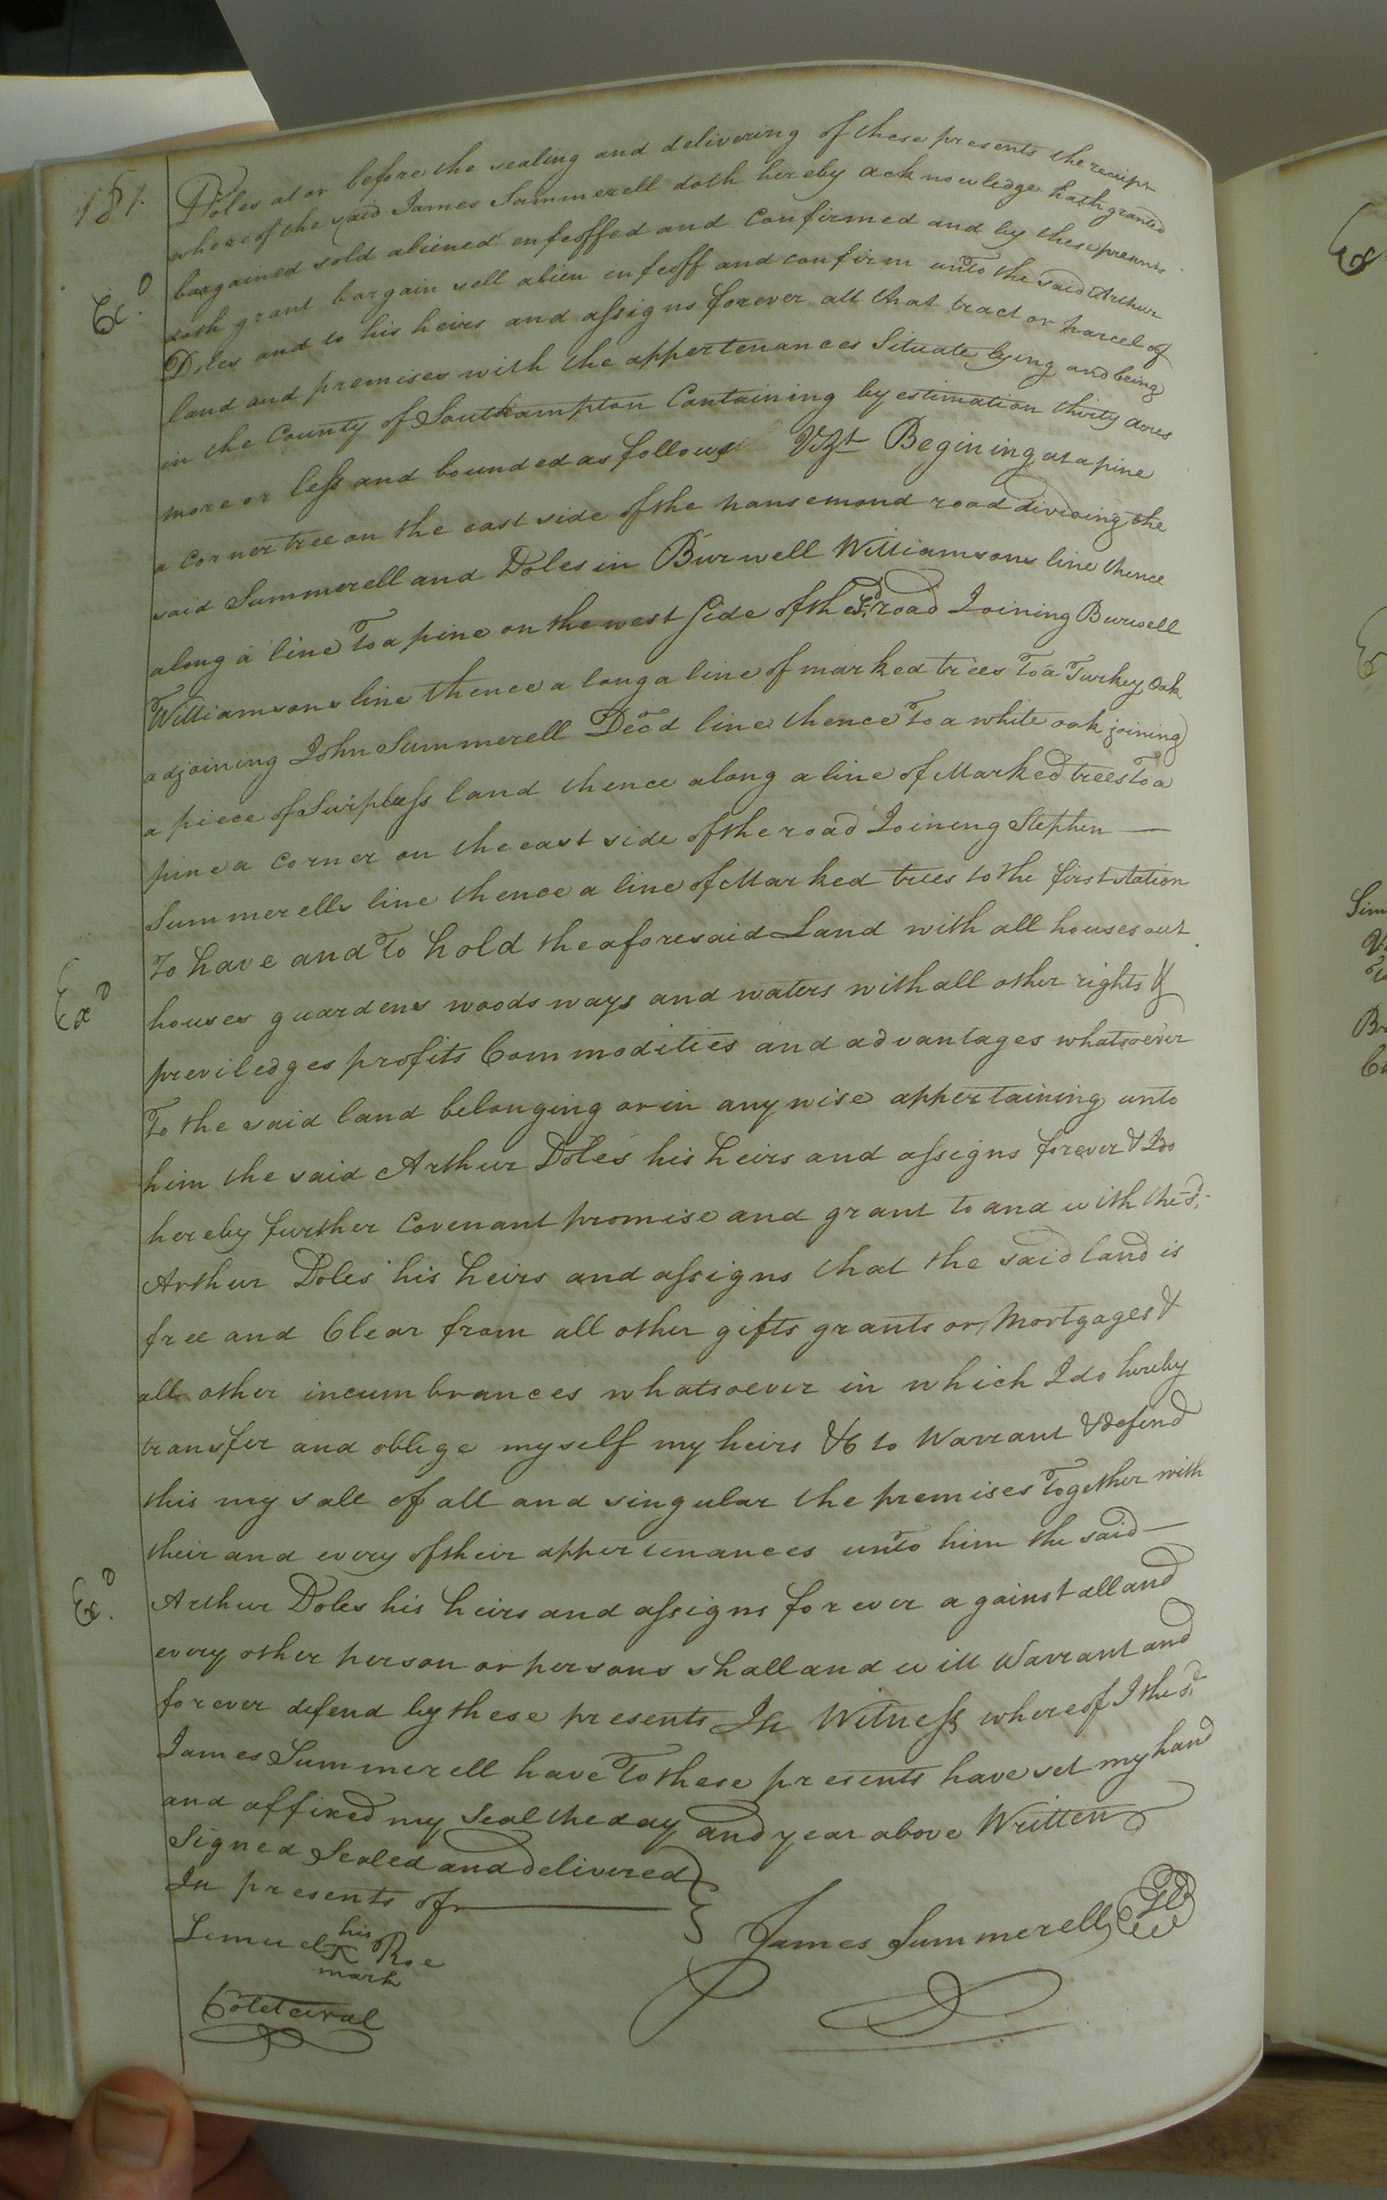 181.
Doles at or before the sealing and delivering of these presents the receipt
where of the said James Summerell doth hereby acknowledge hath granted
bargained sold aliened enfeoffed and Confirmed and by these presents
doth grant bargain sell alien enfeoff and confirm unto the said Arthur
Ex.d
Doles and to his heirs and assigns forever all that tract or parcel of
land and premises with the appertenances Situate lying and being
in the County of Southampton Containing by estimation thirty acres
more or less and bounded as follows Vizt Begining at a pine
a corner tree on the east side of the nansemond road dividing the
said Summerell and Doles in Burwell Williamsons line thence
along a line To a pine on the west Side of the sd. road Joining Burwell
Williamsons line thence a long a line of marked trees To a Turkey Oak
adjoining John Summerell Decd line thence To a white oak joining
a piece of Surpluss land thence along a line of Marked trees To a
pine a corner on the east side of the road Joining Stephen —
Summerells line thence a line of Marked trees to the first station
To have and To hold the aforesaid Land with all houses out
Ex.d
houses guardens woods ways and waters with all other rights &
previledges profits Commodities and advantages whatsoever
To the said land belonging or in any wise appertaining unto
him the said Arthur Doles his heirs and assigns forever & Do
hereby further Covenant promise and grant to and with the sd.
Arthur Doles his heirs and assigns that the said land is
free and Clear from all other gifts grants or Mortgages &
all other incumbrances whatsoever in which I do hereby
transfer and oblige myself my heirs &c to Warrant & defend
this my sale of all and singular the premises Together with
their and every of their appertenances unto him the said —
Ex.d
Arthur Doles his heirs and assigns for ever against all and
every other person or persons shall and will Warrant and
forever defend by these presents In Witness whereof I the sd.
James Summerell have To these presents have set my hand
and affixed my Seal the day and year above Written
Signed Sealed and delivered
In presents of
his
Lemuel X Roe
mark
James Summerell
Cole Carval